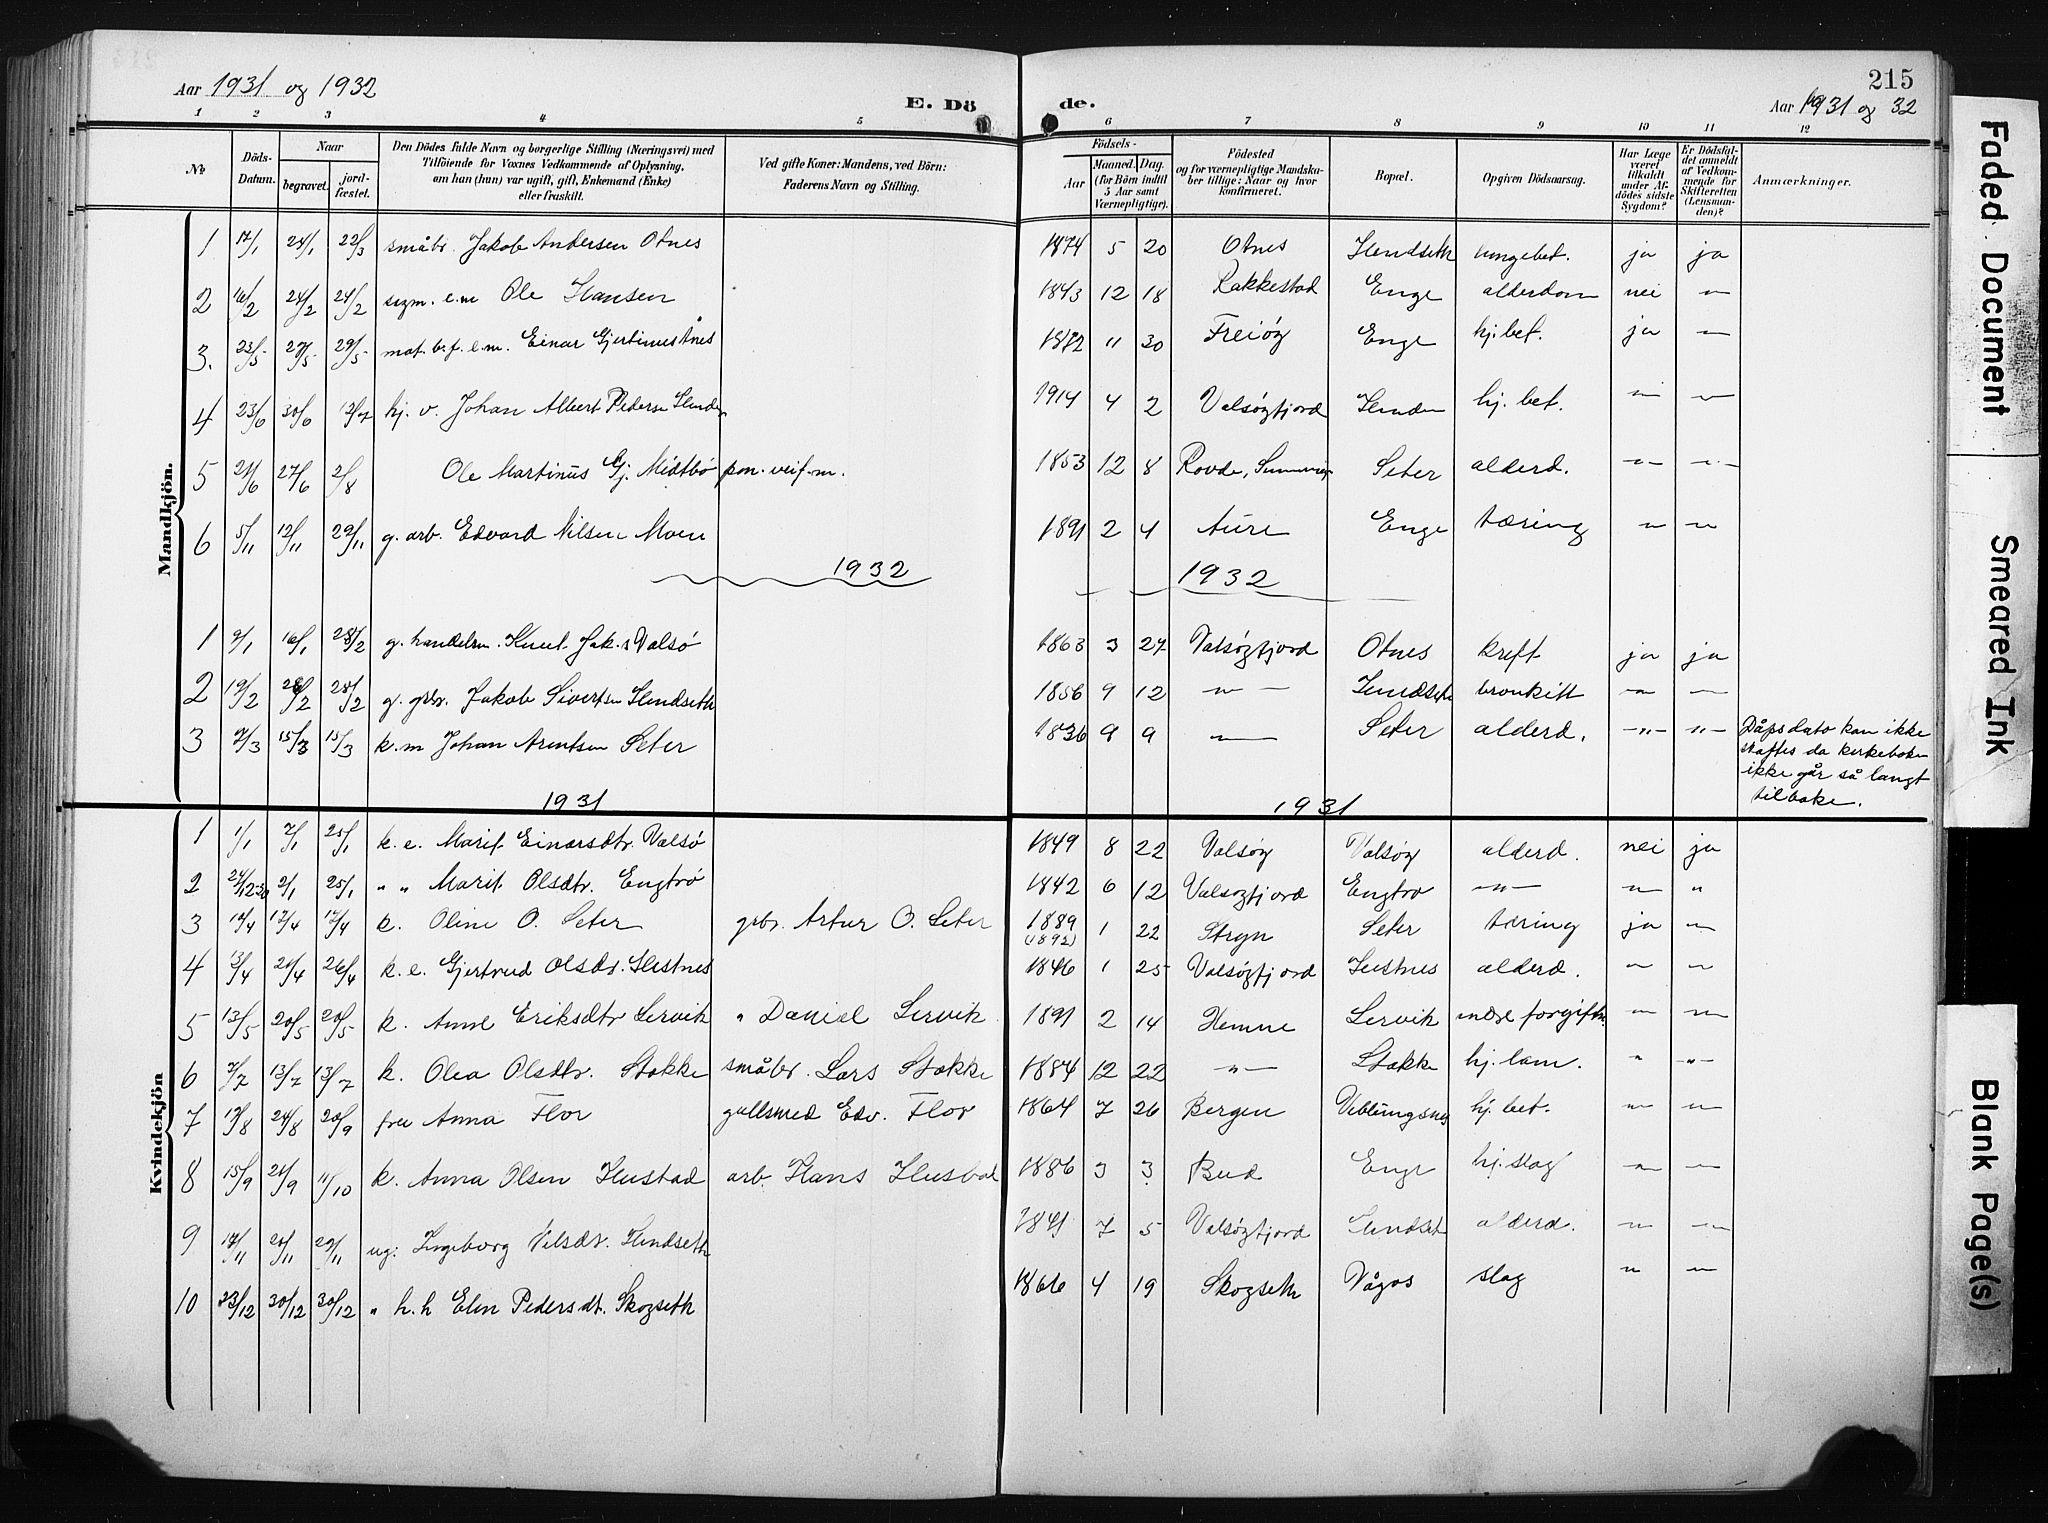 215
Aar 1931 og 1932 E. Dö de. Aar 1931 og 32
1 2 3 4 5 6 7 8 9 10 11 12
No. Döds-Datum. Naar begravet. jord-fæstet. Den Dödes fulde Navn og borgerlige Stilling (Næringsvei) med Tilföiende for Voxnes Vedkommende af Oplysning, om han (hun) var ugift, gift, Enkemand (Enke) eller fraskilt. Ved gifte Koner: Mandens, ved Börn: Faderens Navn og Stilling. Födsels- Aar Maaned. Dag. (for Börn indtil 5 Aar samt Værnepligtige). Födested og for værnepligtige Mandskaber tillige: Naar og hvor konfirmeret. Bopæl. Opgiven Dödsaarsag. Har Læge været tilkaldt under Afdödes sidste Sygdom? Er Dödsfaldet anmeldt af Vedkommende for Skifteretten (Lensmanden)? Anmærkninger.
Mandkjön.
1 17/1 24/1 22/3 småbr. Jakob Andersen Otnes 1874 5 20 Otnes Hendseth lungebet. ja ja
2 16/2 24/2 24/2 e.m Ole Hansen 1843 12 18 Rakkestad Enge alderdom nei "
3. 23/5 29/5 29/5 e.m. Einar Gjertinus Ånes 1872 11 30 Freiøy Enge hj.bet. ja "
4 23/6 30/6 12/7 hj. v. Johan Albert Pedersen Henden 1914 4 2 Valsøyfjord Henden hj. bet. " "
5 21/6 27/6 2/8 Ole Martinus Gj. Midtbø pen. veif.m. 1853 12 8 Rovde, Sunnmør Seter alderd. " "
6 5/11 12/11 29/11 g. arb. Edvard Nilsen Moen 1891 2 4 Aure Enge tæring " "
1932 1932
1 9/1 16/1 28/2 g. handelsm. Knut Jak.s Valsø 1863 3 27 Valsøyfjord Otnes kreft ja ja
2 19/2 28/2 28/2 g. gbr. Jakob Sivertsen Hendseth 1856 9 12 " Hendseth bronkitt " "
3 7/3 15/3 15/3 k.m Johan Arentsen Seter 1836 9 9 " Seter alderd. " " Dåpsdato kan ikke
skaffes da kirkeboken
ikke går så langt
tilbake.
1931 1931
Kvindekjön
1 1/1 7/1 25/1 k. e. Marit Einarsdtr. Valsø 1849 8 22 Valsøy Valsøy alderd. nei ja
2 24/12-30 2/1 25/1 " " Marit Olsdtr. Engtrø 1842 6 12 Valsøyfjord Engtrø " " "
3 10/4 17/4 17/4 k. Oline O. Seter gbr. Artur O. Seter 1889 (1892) 1 22 Stryn Seter tæring ja "
4 13/4 21/4 26/4 k. e. Gjertrud Olsdr. Hestnes 1846 1 25 Valsøyfjord Hestnes alderd. " "
5 13/5 20/5 20/5 k. Anne Eriksdtr Lervik " Daniel Lervik 1891 2 14 Hemne Lervik indre forgiftn. " "
6 7/7 13/7 13/7 k. Olea Olsdtr. Stokke småbr. Lars Stokke 1884 12 22 " Stokke hj. lam. " "
7 19/8 24/8 20/9 fru Anna Flor gullsmed Edv. Flor 1864 7 26 Bergen Veblungsnes hj. bet. " "
8 15/9 21/9 11/10 k. Anna Olsen Hustad arb. Hans Hustad 1886 3 3 Bud Enge hj. slag " "
9 17/11 21/11 29/11 ug. Ingeborg Nilsdr. Hendseth 1841 7 5 Valsøyfjord Hendset alderd. " "
10 23/12 30/12 30/12 " h. h Elen Pedersdt. Skogseth 1866 4 19 Skogseth Vågos slag " "
Faded Document
Smeared Ink
Blank Page(s)